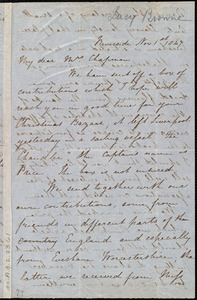 Lucy Browne
Norwich Nov. 1st 1847
My dear Mrs Chapman
We have sent off a box of
contributions which I hope will
reach you in good time for your
Christmas Bazaar. It left Liverpool
yesterday in a sailing ship called "The
Chandler", the captain's name is
Paice. The box is not insured.
We send together with our
contributions, some from
friends in different parts of the
country England, and especially
from Evesham Worcestershire. the
latter we received from Miss